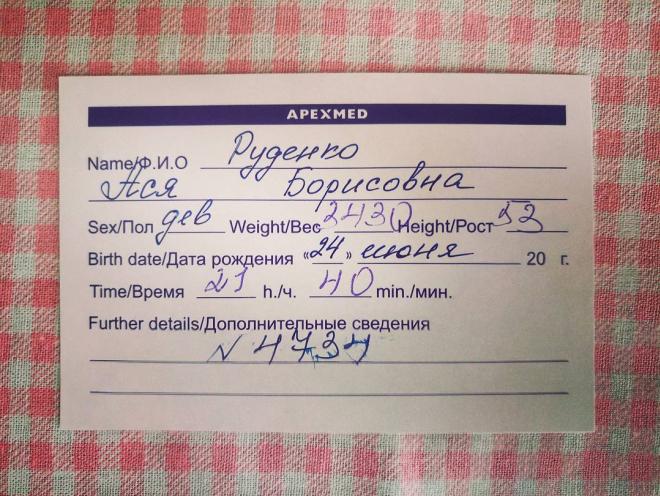 APEXMED
Name/Ф.И.О Руденко
Ася Борисовна
Sex/Пол дев Weight/Вес 3430 Height/Рост 52
Birth date/Дата рождения «24» июня 20 г.
Time/Время 21 h./ч. 40 min./мин.
Further details/Дополнительные сведения
N 4734